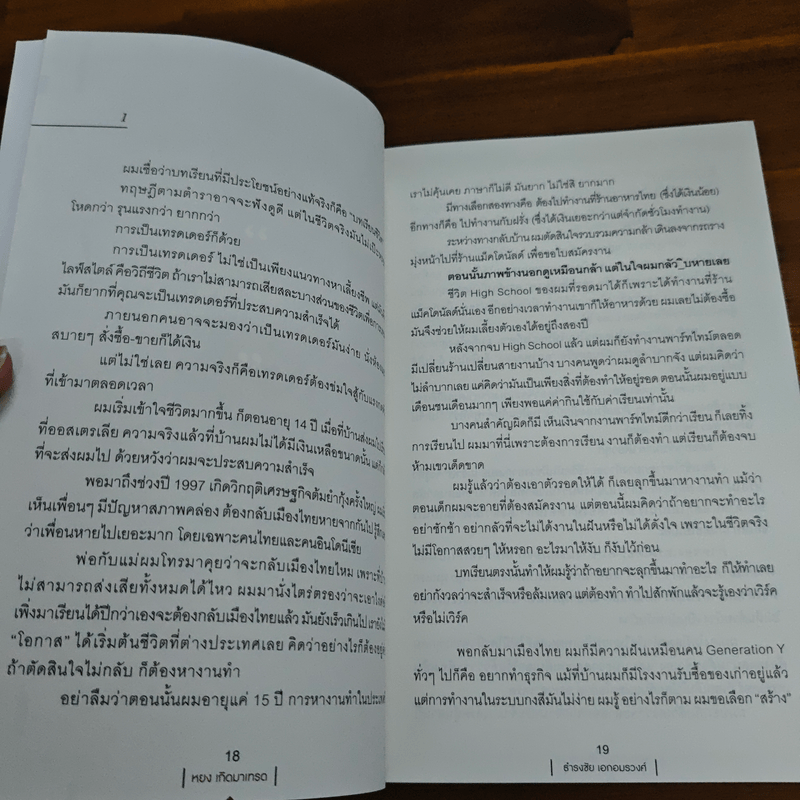 1
ผมเชื่อว่าบทเรียนที่มีประโยชน์อย่างแท้จริงก็คือ "บทเรียนชีวิต"
ทฤษฎีตามตำราอาจจะฟังดูดี แต่ในชีวิตจริงมันไม่
โหดกว่า รุนแรงกว่า ยากกว่า
การเป็นเทรดเดอร์ก็ด้วย
การเป็นเทรดเดอร์ ไม่ใช่เป็นเพียงแนวทางหาเลี้ยงชีพ
ไลฟ์สไตล์ คือวิถีชีวิต ถ้าเราไม่สามารถเสียสละบางส่วนของชีวิตเพื่อ
มันก็ยากที่คุณจะเป็นเทรดเดอร์ที่ประสบความสำเร็จได้
ภายนอกคนอาจจะมองว่าเป็นเทรดเดอร์มันง่าย นั่ง
สบายๆ สั่งซื้อ-ขายก็ได้เงิน
แต่ไม่ใช่เลย ความจริงก็คือเทรดเดอร์ต้องข่มใจสู้กับแรง
ที่เข้ามาตลอดเวลา
ผมเริ่มเข้าใจชีวิตมากขึ้น ก็ตอนอายุ 14 ปี เมื่อที่บ้านส่งผม
ที่ออสเตรเลีย ความจริงแล้วที่บ้านผมไม่ได้มีเงินเหลือขนาดนั้น
ที่จะส่งผมไป ด้วยหวังว่าผมจะประสบความสำเร็จ
พอมาถึงช่วงปี 1997 เกิดวิกฤติเศรษฐกิจต้มยำกุ้งครั้งใหญ่
เห็นเพื่อนๆ มีปัญหาสภาพคล่อง ต้องกลับเมืองไทยหายจากกันไป
ว่าเพื่อนหายไปเยอะมาก โดยเฉพาะคนไทยและคนอินโดนีเซีย
พ่อกับแม่ผมโทรมาคุยว่าจะกลับเมืองไทยไหม เพราะ
ไม่สามารถส่งเสียทั้งหมดได้ไหว ผมมานั่งไตร่ตรองว่าจะเอา
เพิ่งมาเรียนได้ปีกว่าเองจะต้องกลับเมืองไทยแล้ว มันยังเร็วเกินไป
"โอกาส" ได้เริ่มต้นชีวิตที่ต่างประเทศเลย คิดว่าอย่างไรก็ต้อง
ถ้าตัดสินใจไม่กลับ ก็ต้องหางานทำ
อย่าลืมว่าตอนนั้นผมอายุแค่ 15 ปี การหางานทำใน
18
หยง เกิดมาเทรด
เราไม่คุ้นเคย ภาษาก็ไม่ดี มันยาก ไม่ใช่สิ ยากมาก
มีทางเลือกสองทางคือ ต้องไปทำงานที่ร้านอาหารไทย (ซึ่งได้เงินน้อย)
อีกทางก็คือ ไปทำงานกับฝรั่ง (ซึ่งได้เงินเยอะกว่าแต่จำกัดชั่วโมงทำงาน)
ระหว่างทางกลับบ้าน ผมตัดสินใจรวบรวมความกล้า เดินลงจากรถราง
มุ่งหน้าไปที่ร้านแม็คโดนัลด์ เพื่อขอใบสมัครงาน
ตอนนั้นภาพข้างนอกดูเหมือนกล้า แต่ในใจผมกลัว บหายเลย
ชีวิต High School ของผมที่รอดมาได้ก็เพราะได้ทำงานที่ร้าน
แม็คโดนัลด์นั่นเอง อีกอย่างเวลาทำงานเขาก็ให้อาหารด้วย ผมเลยไม่ต้องซื้อ
มันจึงช่วยให้ผมเลี้ยงตัวเองได้อยู่ถึงสองปี
หลังจากจบ High School แล้ว แต่ผมก็ยังทำงานพาร์ทไทม์ตลอด
มีเปลี่ยนร้านเปลี่ยนสายงานบ้าง บางคนพูดว่าผมดูลำบากจัง แต่ผมคิดว่า
ไม่ลำบากเลย แค่คิดว่ามันเป็นเพียงสิ่งที่ต้องทำให้อยู่รอด ตอนนั้นผมอยู่แบบ
เดือนชนเดือนมากๆ เพียงพอแค่ค่ากินใช้กับค่าเรียนเท่านั้น
บางคนสำคัญผิดก็มี เห็นเงินจากงานพาร์ทไทม์ดีกว่าเรียน ก็เลยทิ้ง
การเรียนไป ผมมาที่นี่เพราะต้องการเรียน งานก็ต้องทำ แต่เรียนก็ต้องจบ
ห้ามเขวเด็ดขาด
ผมรู้แล้วว่าต้องเอาตัวรอดให้ได้ ก็เลยลุกขึ้นมาหางานทำ แม้ว่า
ตอนเด็กผมจะอายที่ต้องสมัครงาน แต่ตอนนี้ผมคิดว่าถ้าอยากจะทำอะไร
อย่าชักช้า อย่ากลัวที่จะไม่ได้งานในฝันหรือไม่ได้ดั่งใจ เพราะในชีวิตจริง
ไม่มีโอกาสสวยๆ ให้หรอก อะไรมาให้งับ ก็งับไว้ก่อน
บทเรียนตรงนั้นทำให้ผมรู้ว่าถ้าอยากจะลุกขึ้นมาทำอะไร ก็ให้ทำเลย
อย่ากังวลว่าจะสำเร็จหรือล้มเหลว แต่ต้องทำ ทำไปสักพักแล้วจะรู้เองว่าเวิร์ค
หรือไม่เวิร์ค
พอกลับมาเมืองไทย ผมก็มีความฝันเหมือนคน Generation Y
ทั่วๆ ไปก็คือ อยากทำธุรกิจ แม้ที่บ้านผมก็มีโรงงานรับซื้อของเก่าอยู่แล้ว
แต่การทำงานในระบบกงสีมันไม่ง่าย ผมรู้ อย่างไรก็ตาม ผมขอเลือก "สร้าง"
19
ธำรงชัย เอกอมรวงศ์